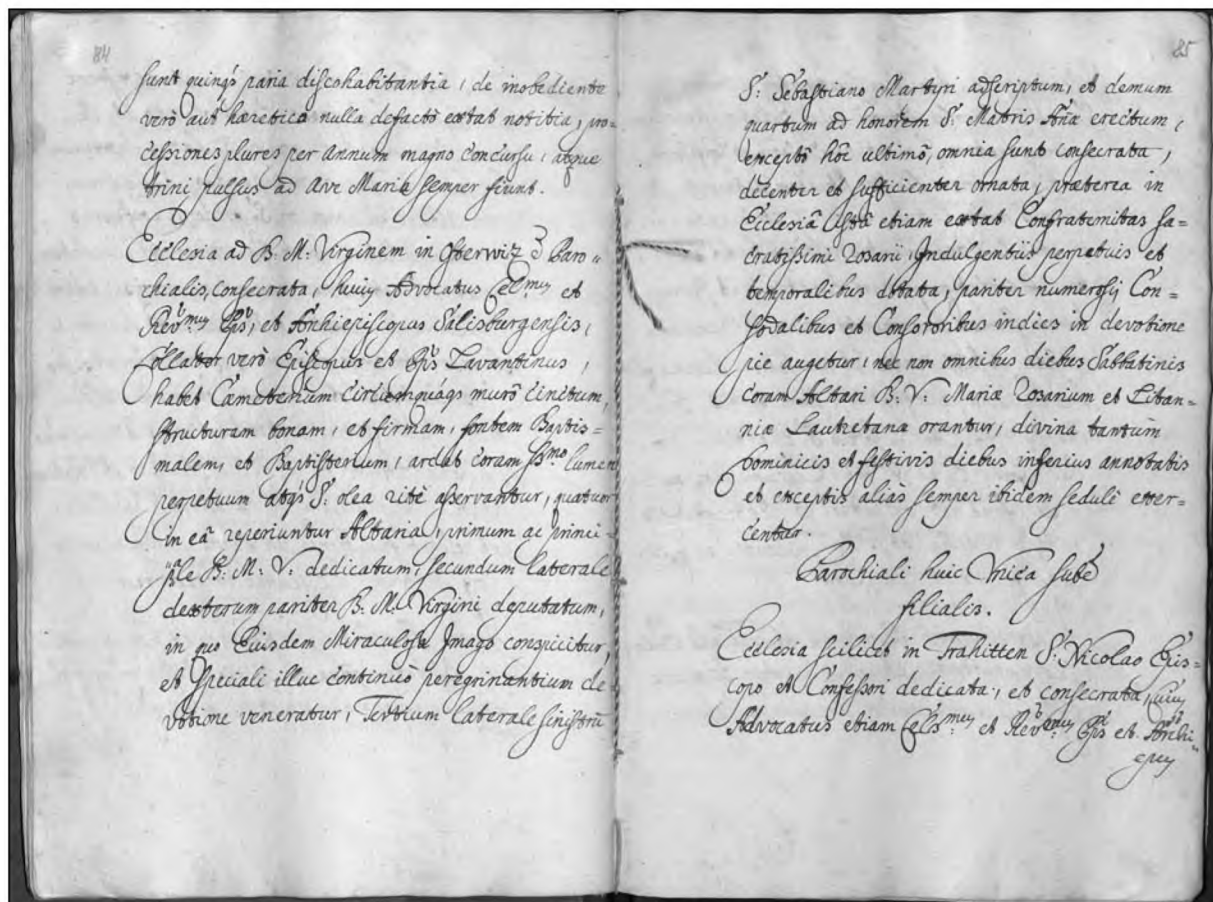 84
sunt quinqs paria discohabitantia, de inobediente
verò aut hæretico nulla defactò extat notitia, pro=
cessiones plures per Annum magno concursu, atque
trini pulsus ad Ave Maria semper fiunt.
Ecclesia ad B: M: Virginem in Osterwiz Paro=
chialis, consecrata, huius Advocatus Cel:mus et
Rev:mus Eps, et Archiepiscopus Salisburgensis,
Collator verò Episcopus et Lavantinus,
habet Cæmeterium circumquaqs murô cinctum,
structuram bonam, et firmam, fontem Baptis=
malem, et Baptisterium, ardet coram Ss:mo lumen
perpetuum atqs S: olea ritè asservantur, quatuor
in eâ reperiuntur Altaria, primum ac princi=
pale B: M: V: dedicatum, secundum laterale
dexterum pariter B: M: Virgini deputatum,
in quo Eiusdem Miraculosa Imago conspicitur,
et speciali illuc continuò peregrinantium de=
votione veneratur, Tertium laterale sinistrũ
85
S: Sebastiano Martyri adscriptum, et demum
quartum ad honorem S: Matris Añæ erectum,
exceptô hôc ultimô, omnia sunt consecrata,
decenter et sufficienter ornata, præterea in
Ecclesiâ istâ etiam extat Confraternitas sa=
cratissimi Rosarii, Indulgentiis perpetuis et
temporalibus dotata, pariter numerosis Con=
sodalibus et Consororibus indies in devotione
pie augetur, nec non omnibus diebus Sabbatinis
coram Altari B: V: Mariæ Rosarium et Litan=
niæ Lauretanæ orantur, divina tantum
Dominicis et festivis diebus inferius annotatis
et exceptis aliàs semper ibidem seduli exer=
centur.
Parochiali huic Unica subẽ
filialis.
Ecclesia scilicet in Trahitten S: Nicolao Epis=
copo et Confessori dedicata, et consecrata, cuius
Advocatus etiam Cels:mus et Rev:mus et Archi=
epus